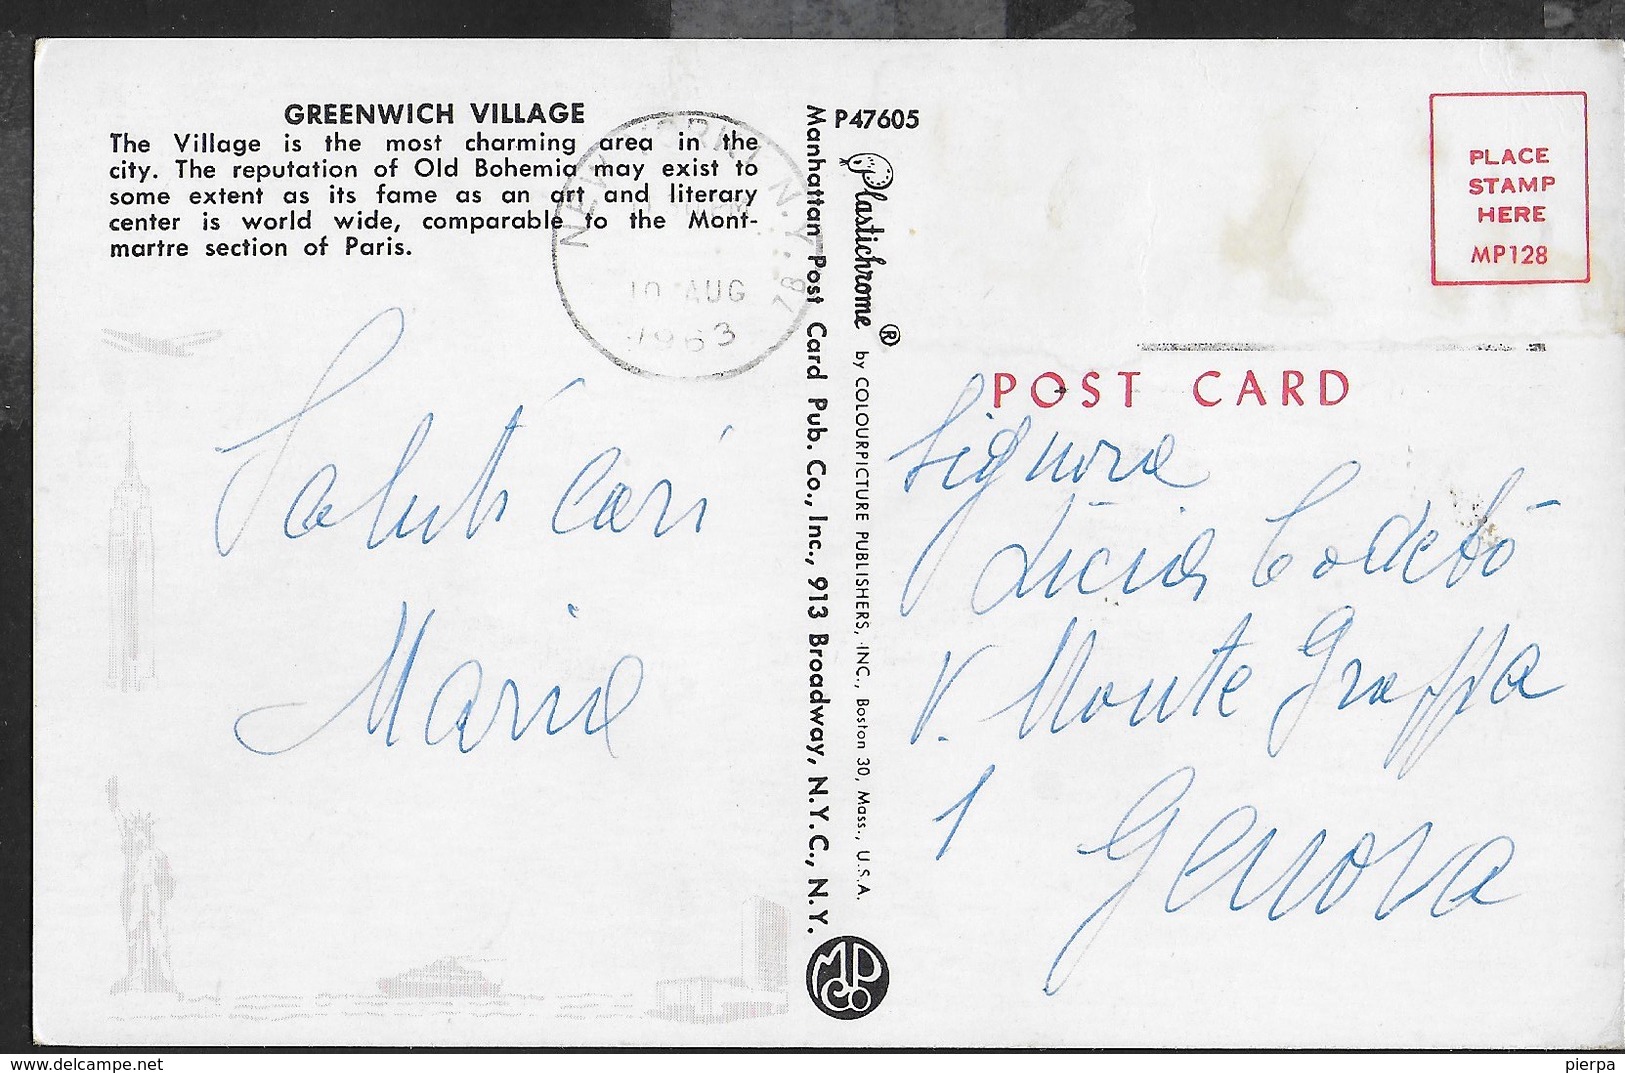 GREENWICH VILLAGE
The Village is the most charming area in the
city. The reputation of Old Bohemia may exist to
some extent as its fame as an art and literary
center is world wide, comparable to the Mont-
martre section of Paris.
NEW YORK, N.Y.
10 AUG
1963
Saluti cari
Maria
Manhattan Post Card Pub. Co., Inc., 913 Broadway, N.Y.C., N.Y.
P47605
Plastichrome ® by COLOURPICTURE PUBLISHERS, INC., Boston 30, Mass., U.S.A.
MPCo
PLACE
STAMP
HERE
MP128
POST CARD
Signora
Licia Codebò
V. Monte Grappa
1 Genova
www.delcampe.net
pierpa